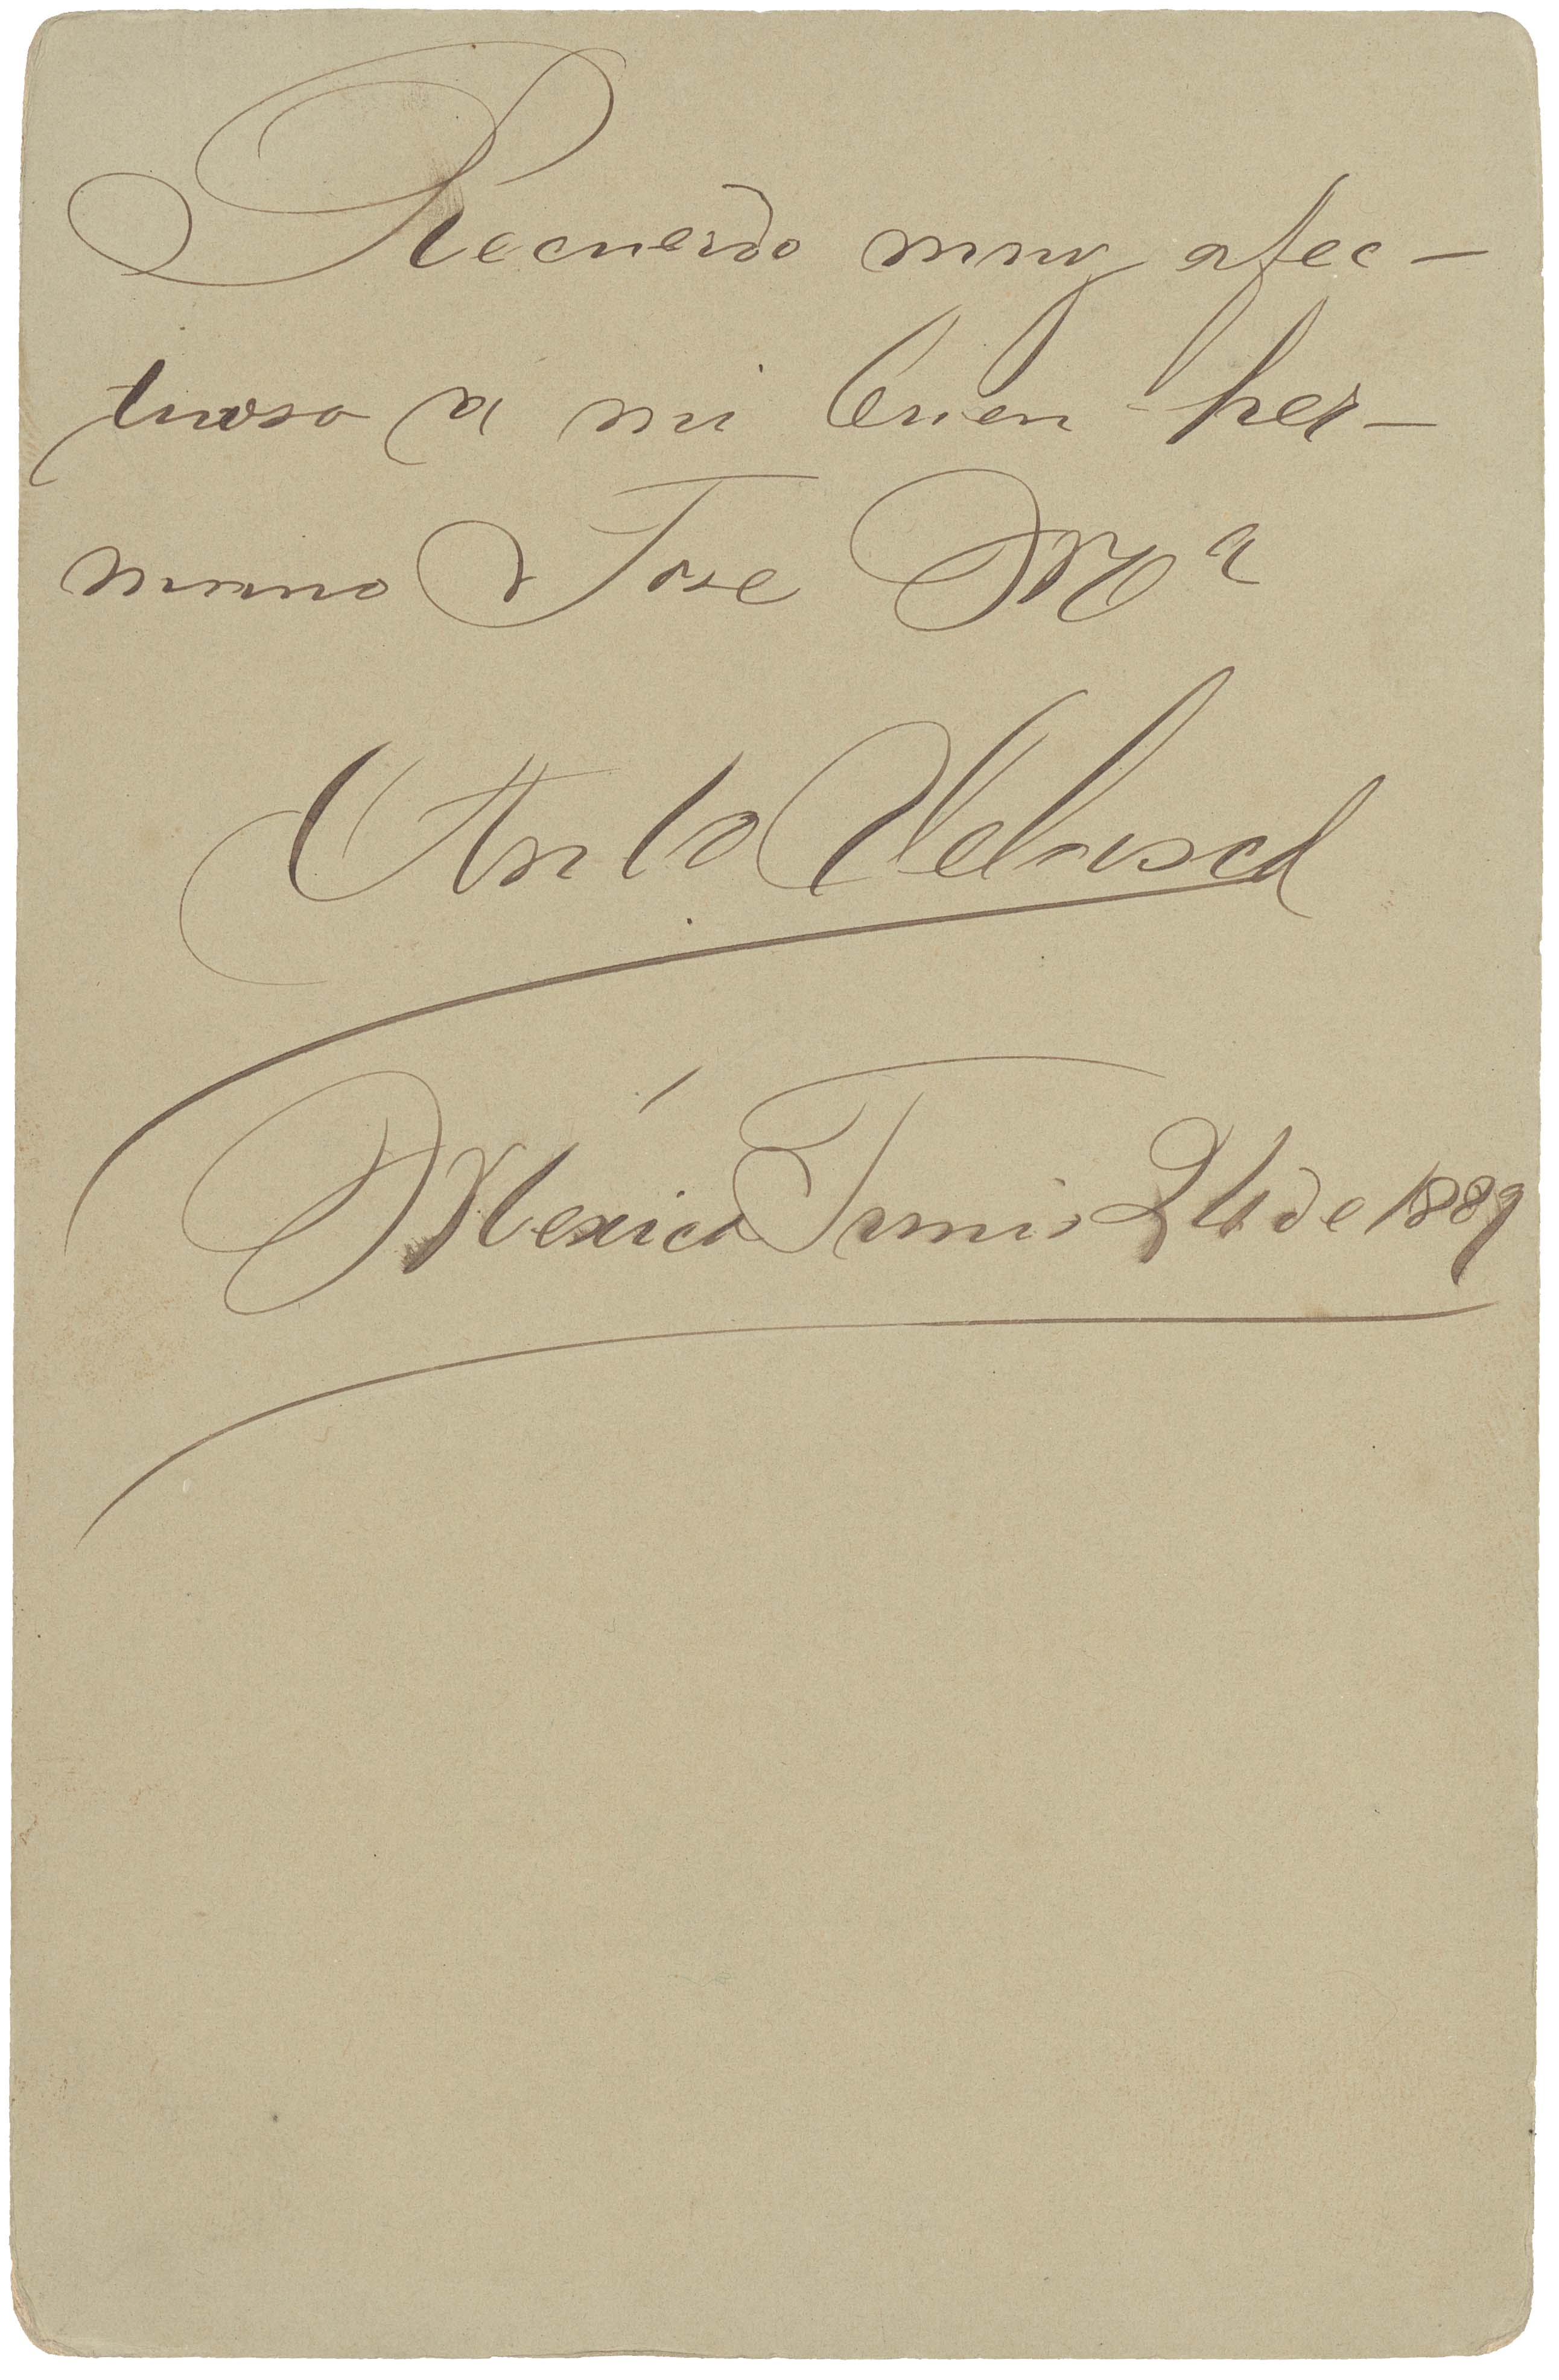 Recuerdo muy afec-
tuoso a mi buen her-
mano Jose Ma
Anto Velasco
México Junio 24 de 1889